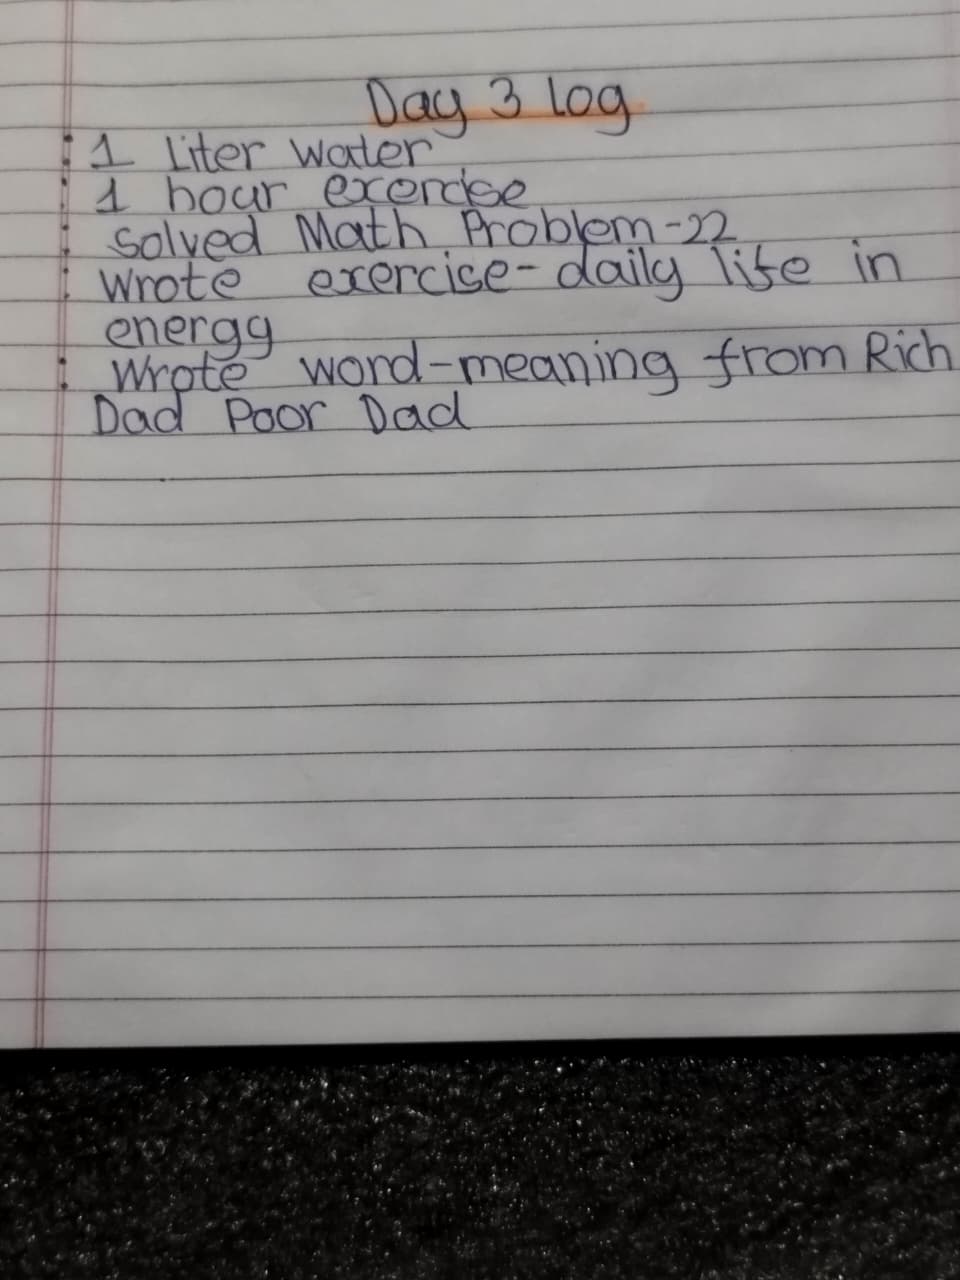 Day 3 log
1 Liter water
1 hour exercise
solved Math Problem-22
wrote exercise-daily life in
energy
Wrote word-meaning from Rich
Dad Poor Dad